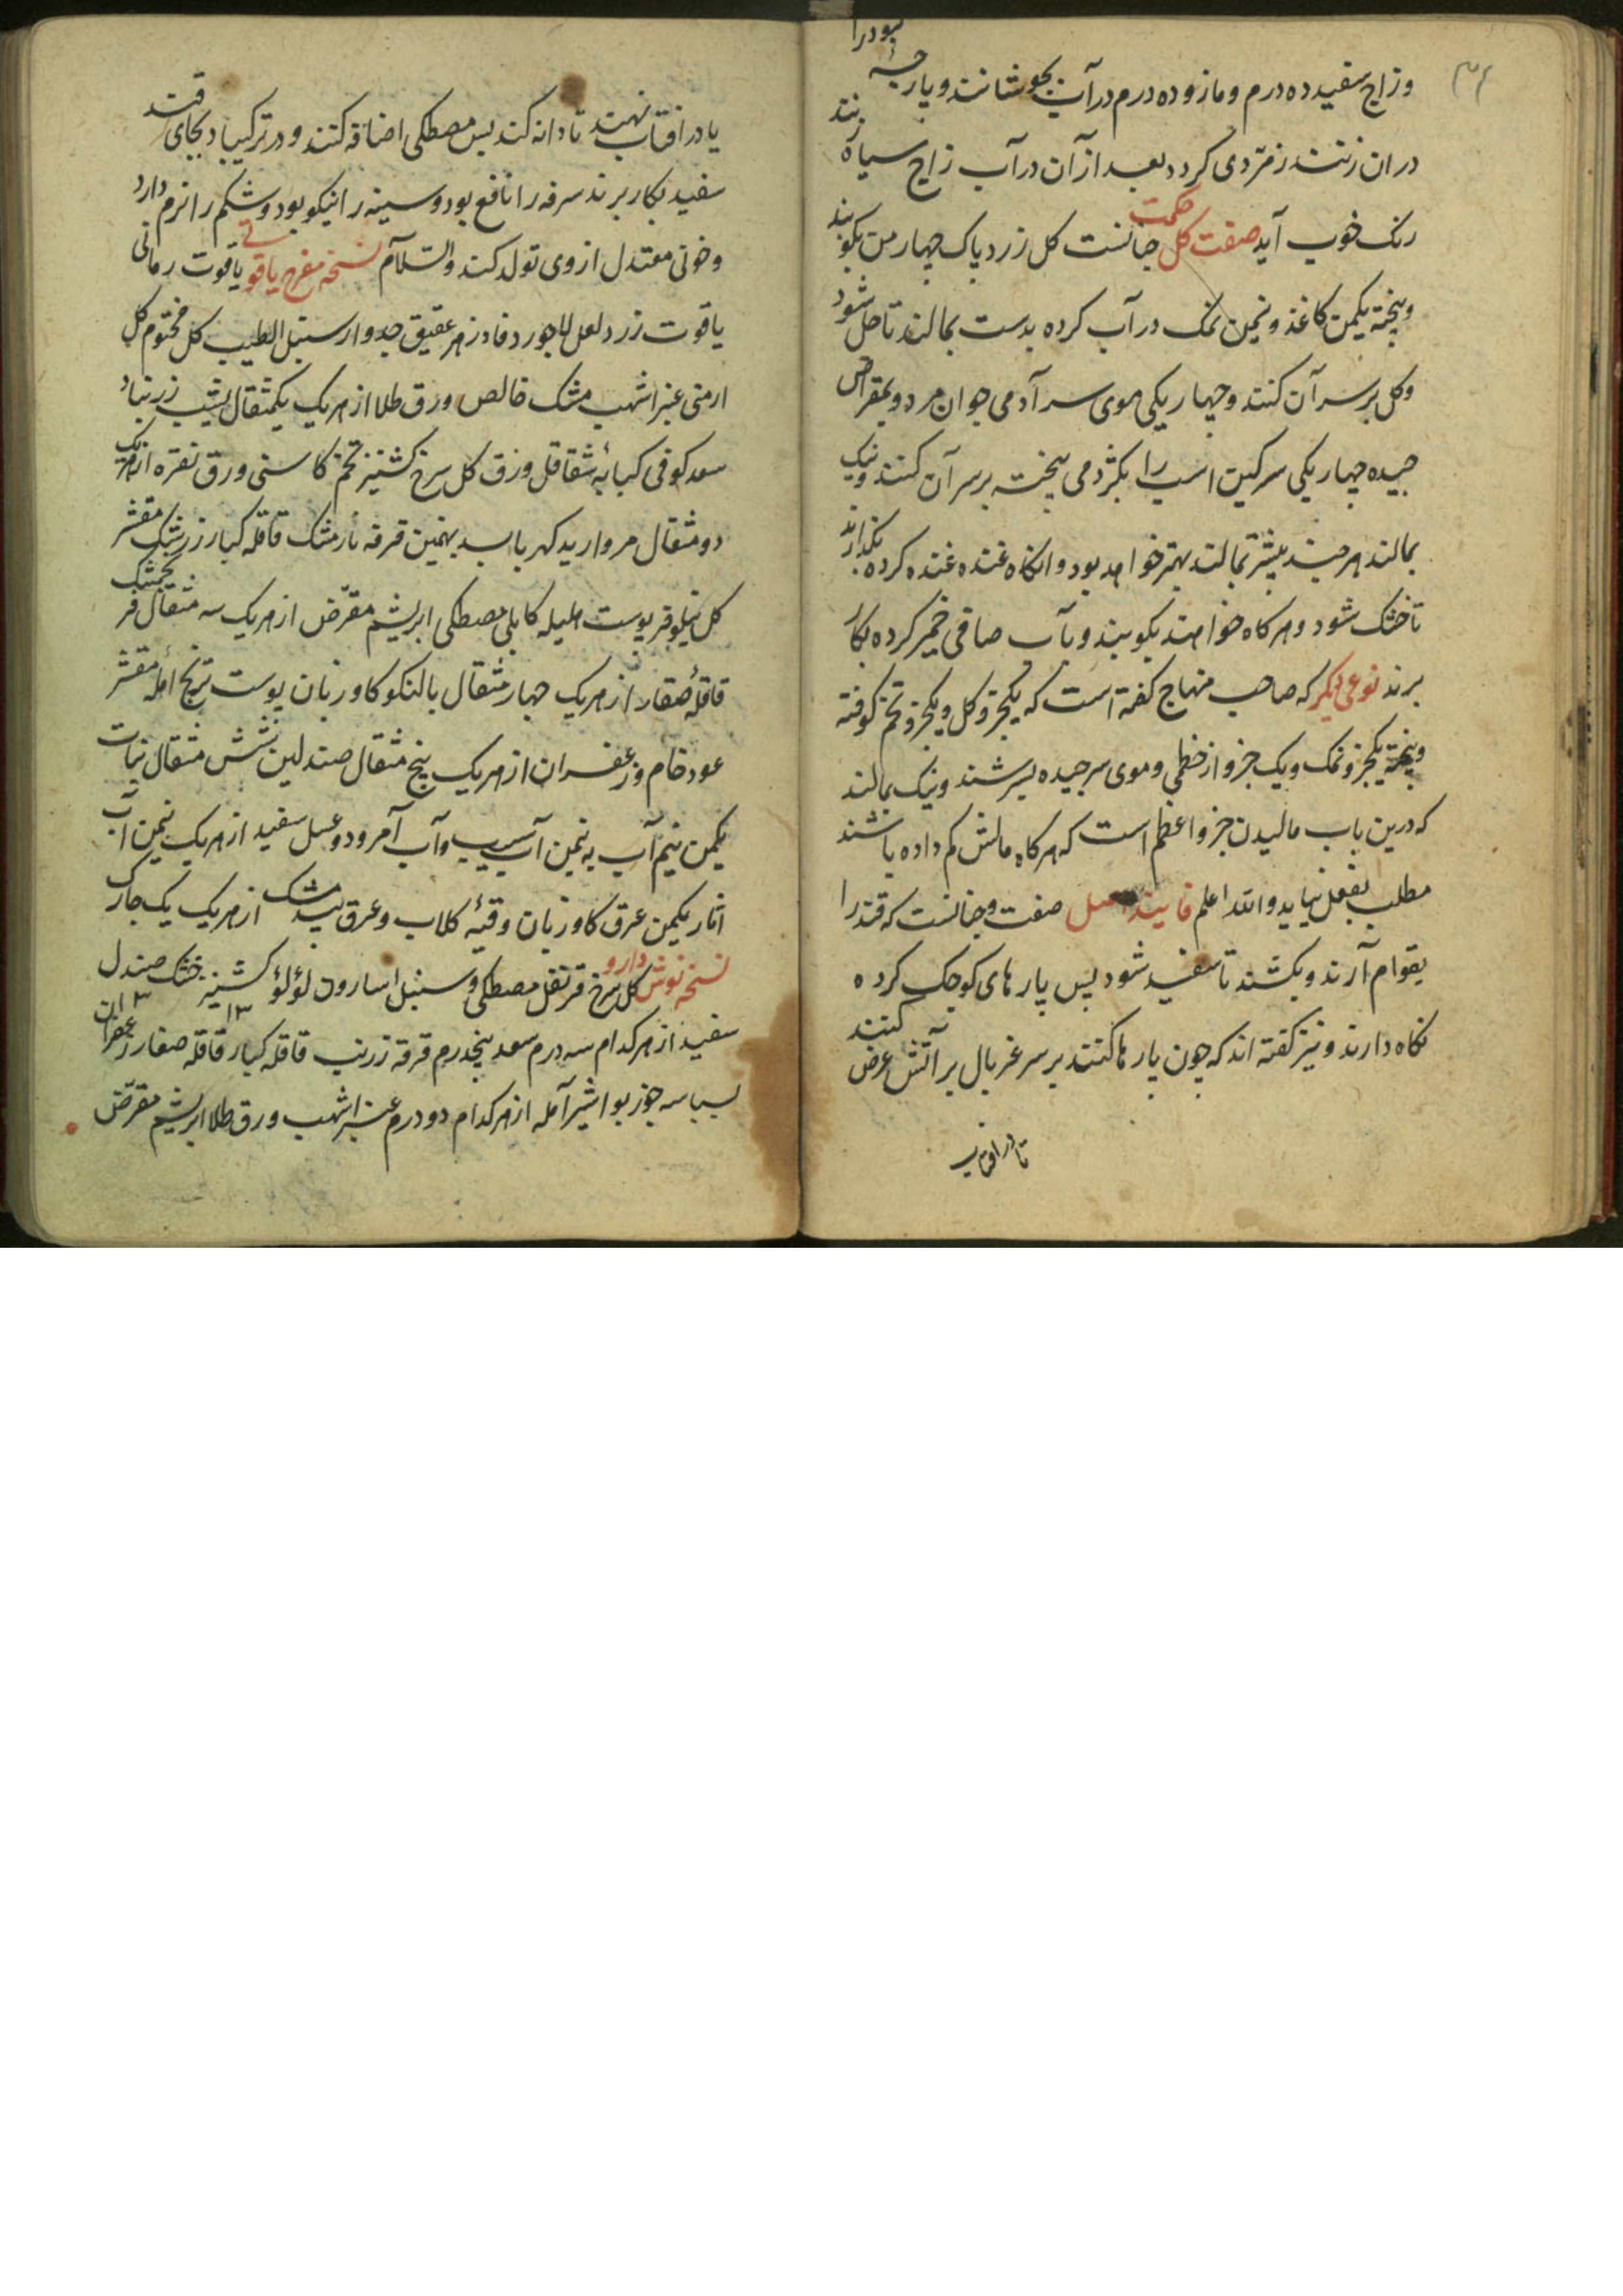 ۳۶
و زاج سفید ده درم و مازو ده درم در آب بجوشانند و پارچهٔ
بودرا
در ان زنند زمردی کردد بعد از آن در آب زاج سیاه زنند
رنک خوب آید صفت کل حکمت جنانست کل زرد پاک چهار من بکوبند
و بیخته یکمن کاغذ و نیمن نمک در آب کرده بدست بمالند تا حل شود
و کل بر سر آن کنند و چهار یکی موی سر آدمی جوان مرد و بمقراض
چیده چهار یکی سرکین اسب را بکژدمی بیخته بر سر آن کنند و نیک
بمالند هر چند بیشتر بمالند بهتر خواهد بود و انکاه غنده غنده کرده بکذارند
تا خشک شود و هر کاه خواهند بکوبند و بآب صافی خمیر کرده بکار
برند نوعی دیکر که صاحب منهاج کفته است که یکجزو کل و یکجزو تخم کوفته
و بیخته یکجزو نمک و یک جزو از خطمی و موی سر چیده بسرشند و نیک بمالند
که درین باب مالیدن جزو اعظم است که هر کاه مالش کم داده باشند
مطلب بفعل نیاید والله اعلم فانیند عسل صفت وجنانست که قند را
بقوام آرند و بکشند تا سفید شود پس پارهای کوچک کرده
نکاه دارند و نیز کفته اند که چون پارها کنند بر سر غربال بر آتش عرض کنند
تا در افتاب
یا در افتاب نهند تا دانه کند پس مصطکی اضافه کنند و در ترکیبا بجای قند
سفید بکار برند سرفه را نافع بود و سینه را نیکو بود و شکم را نرم دارد
و خونی معتدل از وی تولد کند والسلام نسخه مفرح یاقوتی یاقوت رمانی
یاقوت زرد لعل لاجورد فادزهر عقیق جدوار سنبل الطیب کل مختوم کل
ارمنی عنبر اشهب مشک خالص ورق طلا از هریک یکمثقال یشب زرنباد
سعد کوفی کبابه شقاقل ورق کل سرخ کشنیز تخم کاسنی ورق نقره از هریک
دو مثقال مروارید کهربا بسد بهمین قرفه نارمشک قاقله کبار زرشک مقشر
کل نیلوفر پوست هلیله کابلی مصطکی ابریشم مقرض از هریک سه مثقال فرنجمشک
قاقلهٔ صغار از هریک چهار مثقال بالنکو کاوزبان پوست ترنج آمله مقشر
عود خام و زعفران از هریک پنج مثقال صندلین شش مثقال نبات
یکمن نیم آب به نیمن آب سیب و آب آمرود و عسل سفید از هریک نیمن آب
انار یکمن عرق کاوزبان وقیهٔ کلاب و عرق بیدمشک از هریک یک چارک
نسخه نوش دارو کل سرخ قرنفل مصطکی و سنبل اسارون لؤلؤ کشنیز خشک صندل
سفید از هر کدام سه درم سعد پنجدرم قرفه زرنب قاقله کبار قاقله صغار زعفران
بسباسه جوز بوا شیر آمله از هر کدام دو درم عنبر اشهب ورق طلا ابریشم مقرض